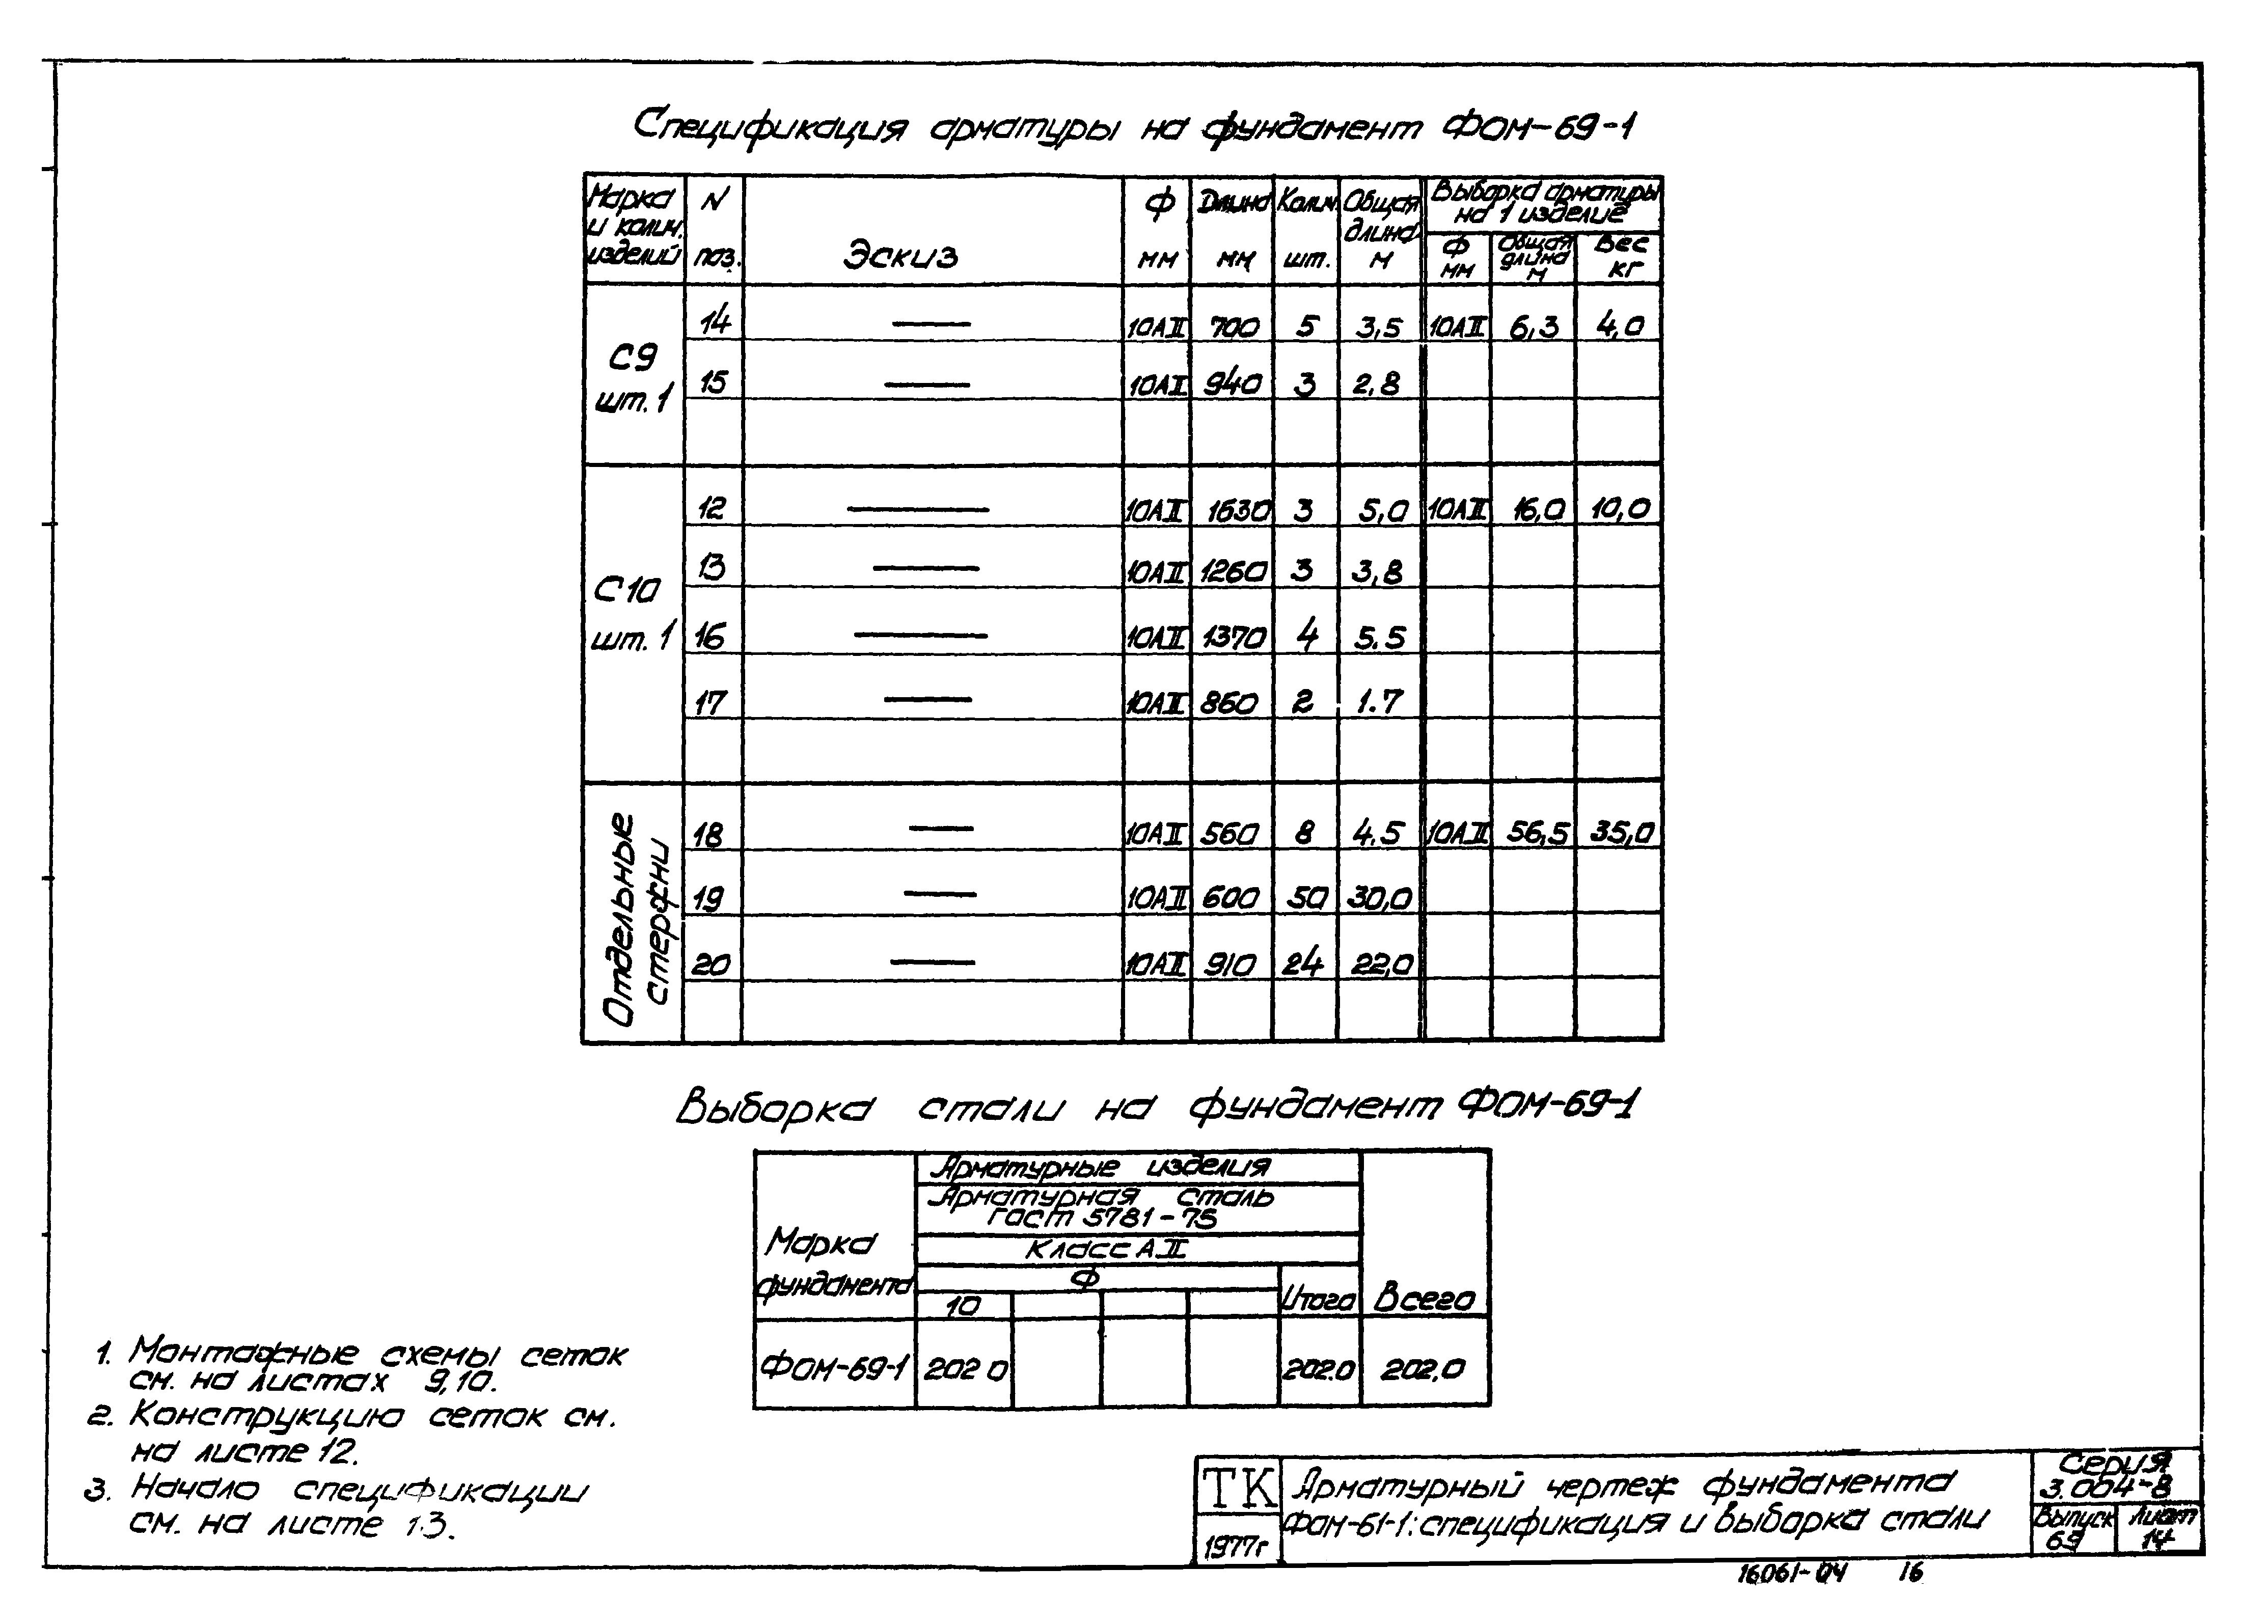 Спецификация арматуры на фундамент ФОМ-69-1
Марка и колич. изделий N поз. Эскиз Ф мм Длина мм Колич. шт. Общая длина м Выборка арматуры на 1 изделие
Ф мм Общая длина м Вес кг
С9 шт. 1
14 10АII 700 5 3,5 10АII 6,3 4,0
15 10АII 940 3 2,8
С10 шт. 1
12 10АII 1630 3 5,0 10АII 16,0 10,0
13 10АII 1260 3 3,8
16 10АII 1370 4 5.5
17 10АII 860 2 1.7
Отдельные стержни
18 10АII 560 8 4.5 10АII 56,5 35,0
19 10АII 600 50 30,0
20 10АII 910 24 22,0
Выборка стали на фундамент ФОМ-69-1
Марка фундамента
Арматурные изделия
Арматурная сталь
гост 5781-75
Класс АII
Ф
10 Итого Всего
ФОМ-69-1 202 0 202.0 202,0
1. Монтажные схемы сеток
см. на листах 9,10.
2. Конструкцию сеток см.
на листе 12.
3. Начало спецификации
см. на листе 13.
ТК
1977г
Арматурный чертеж фундамента
Фом-61-1: спецификация и выборка стали
Серия
3.004-8
Выпуск Лист
69 14
16061-04 16